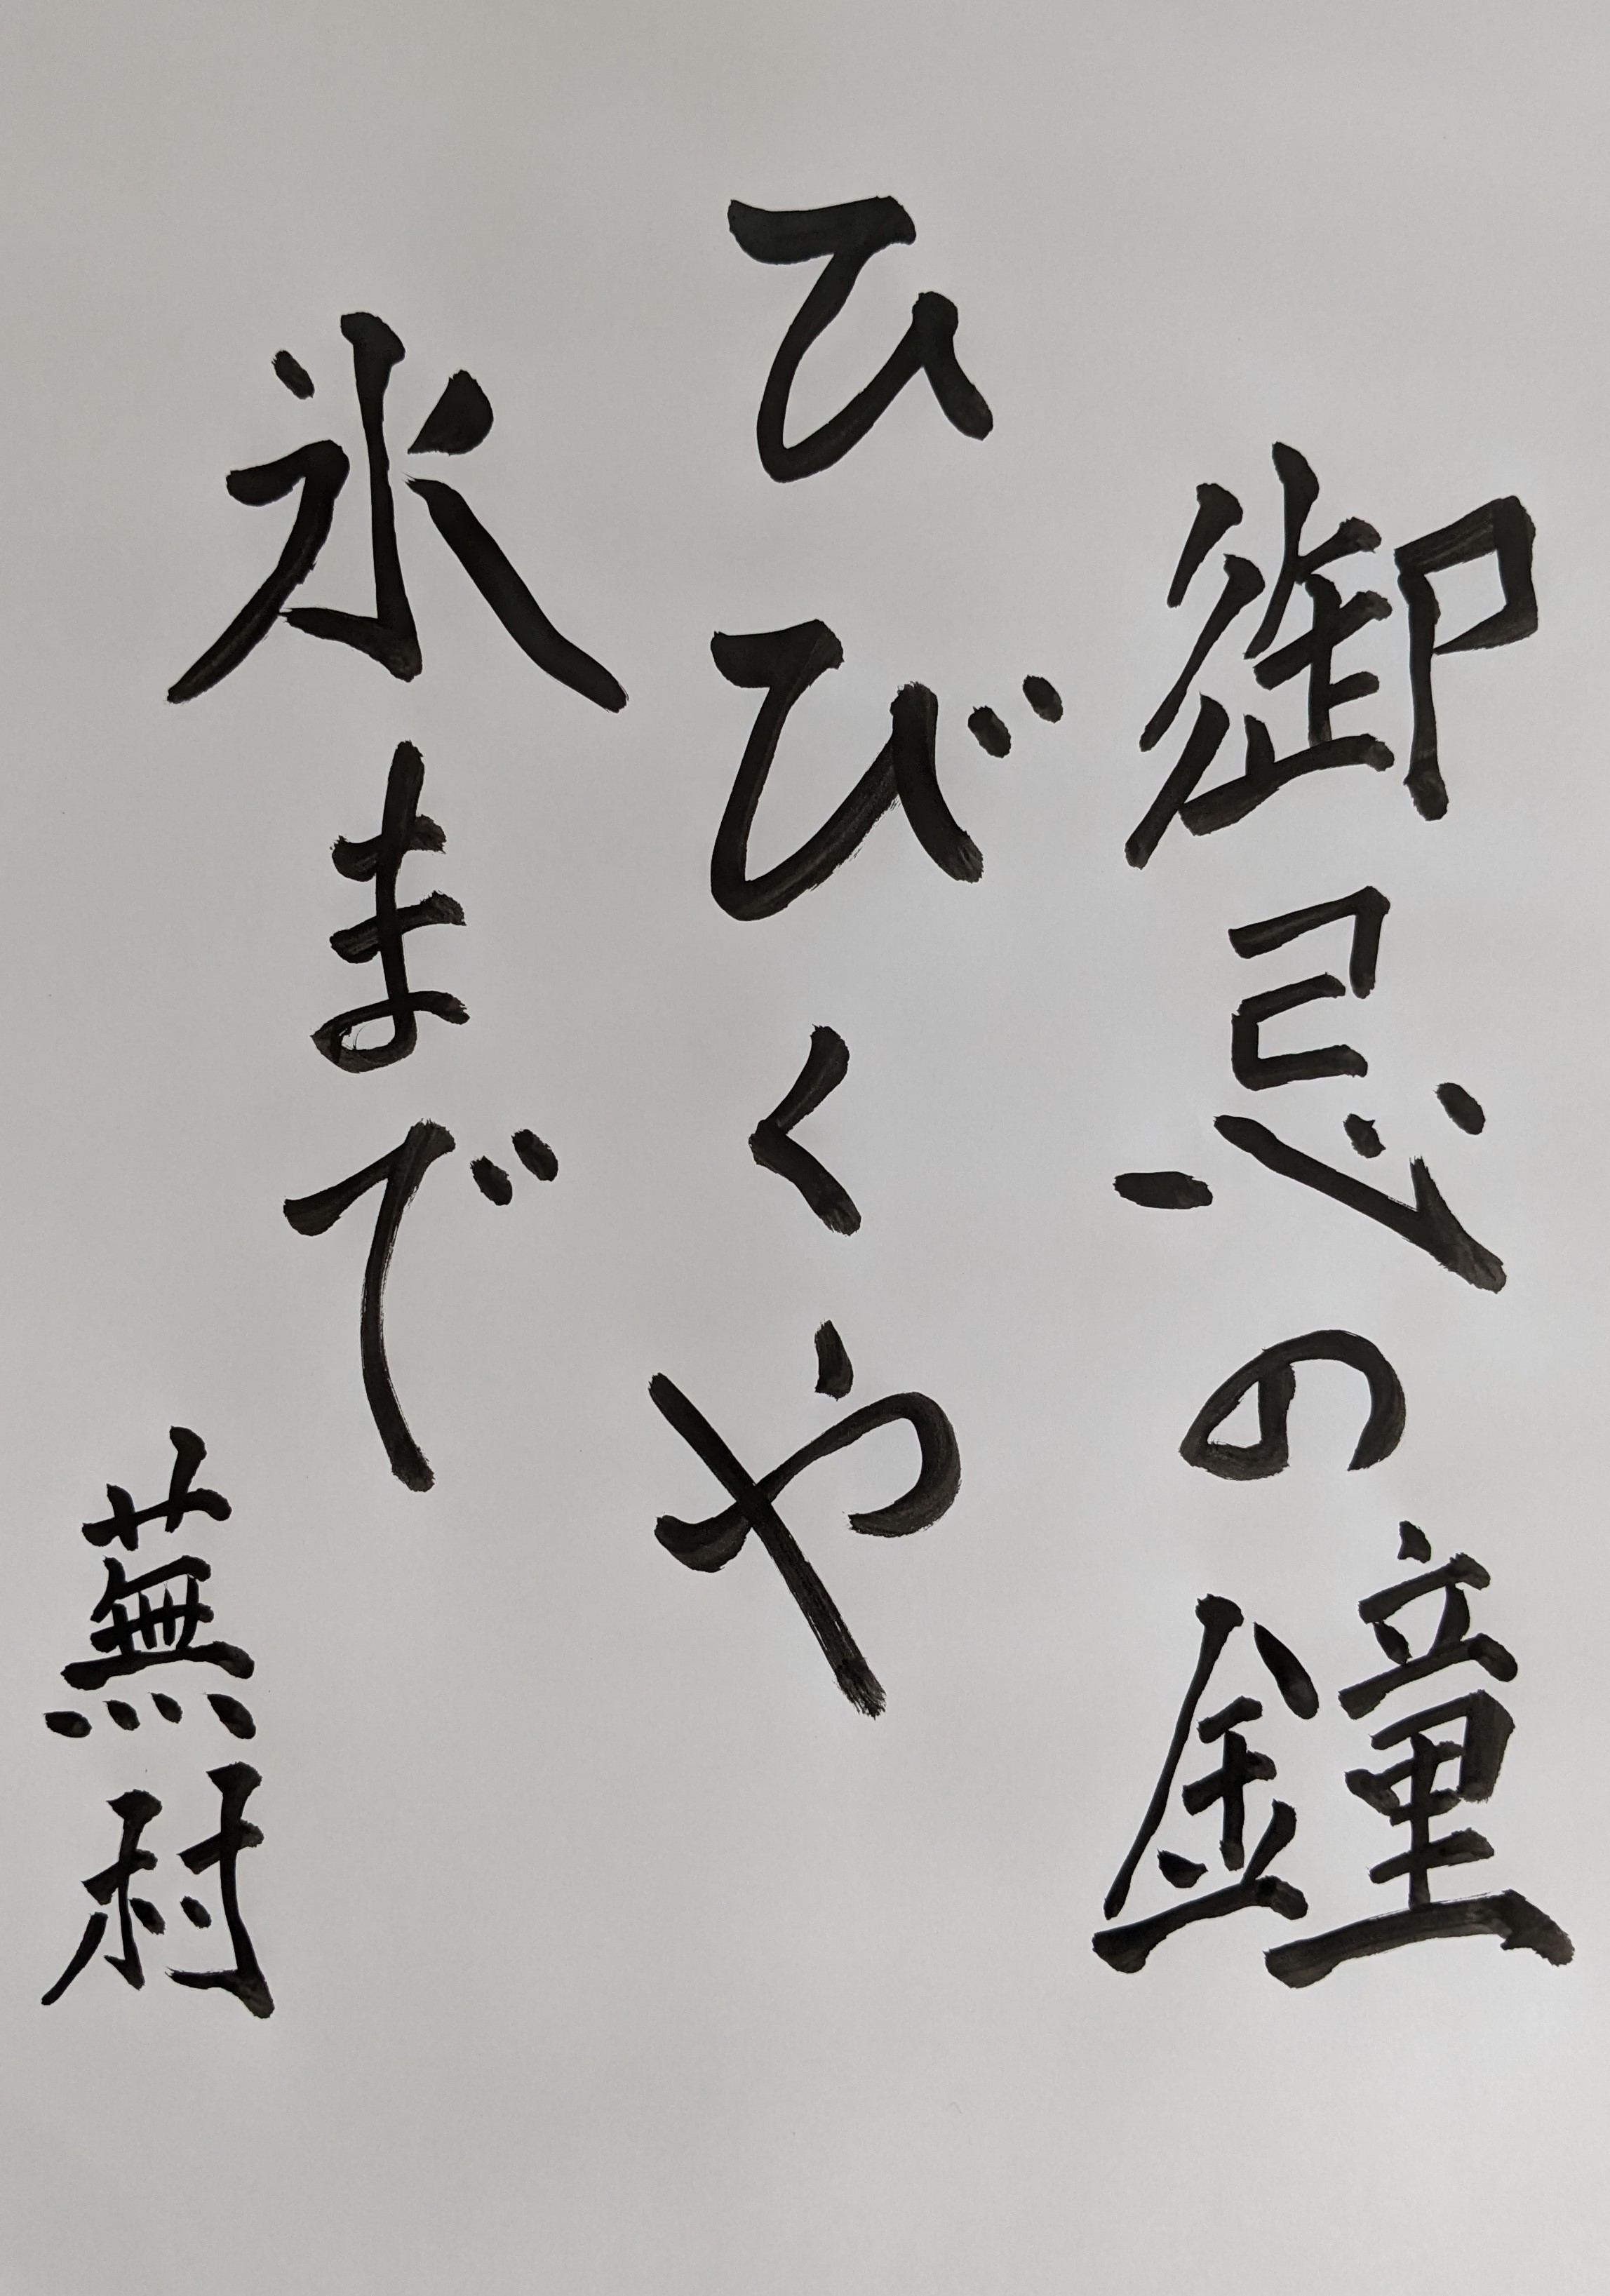 御忌の鐘
ひびくや
氷まで
蕪村